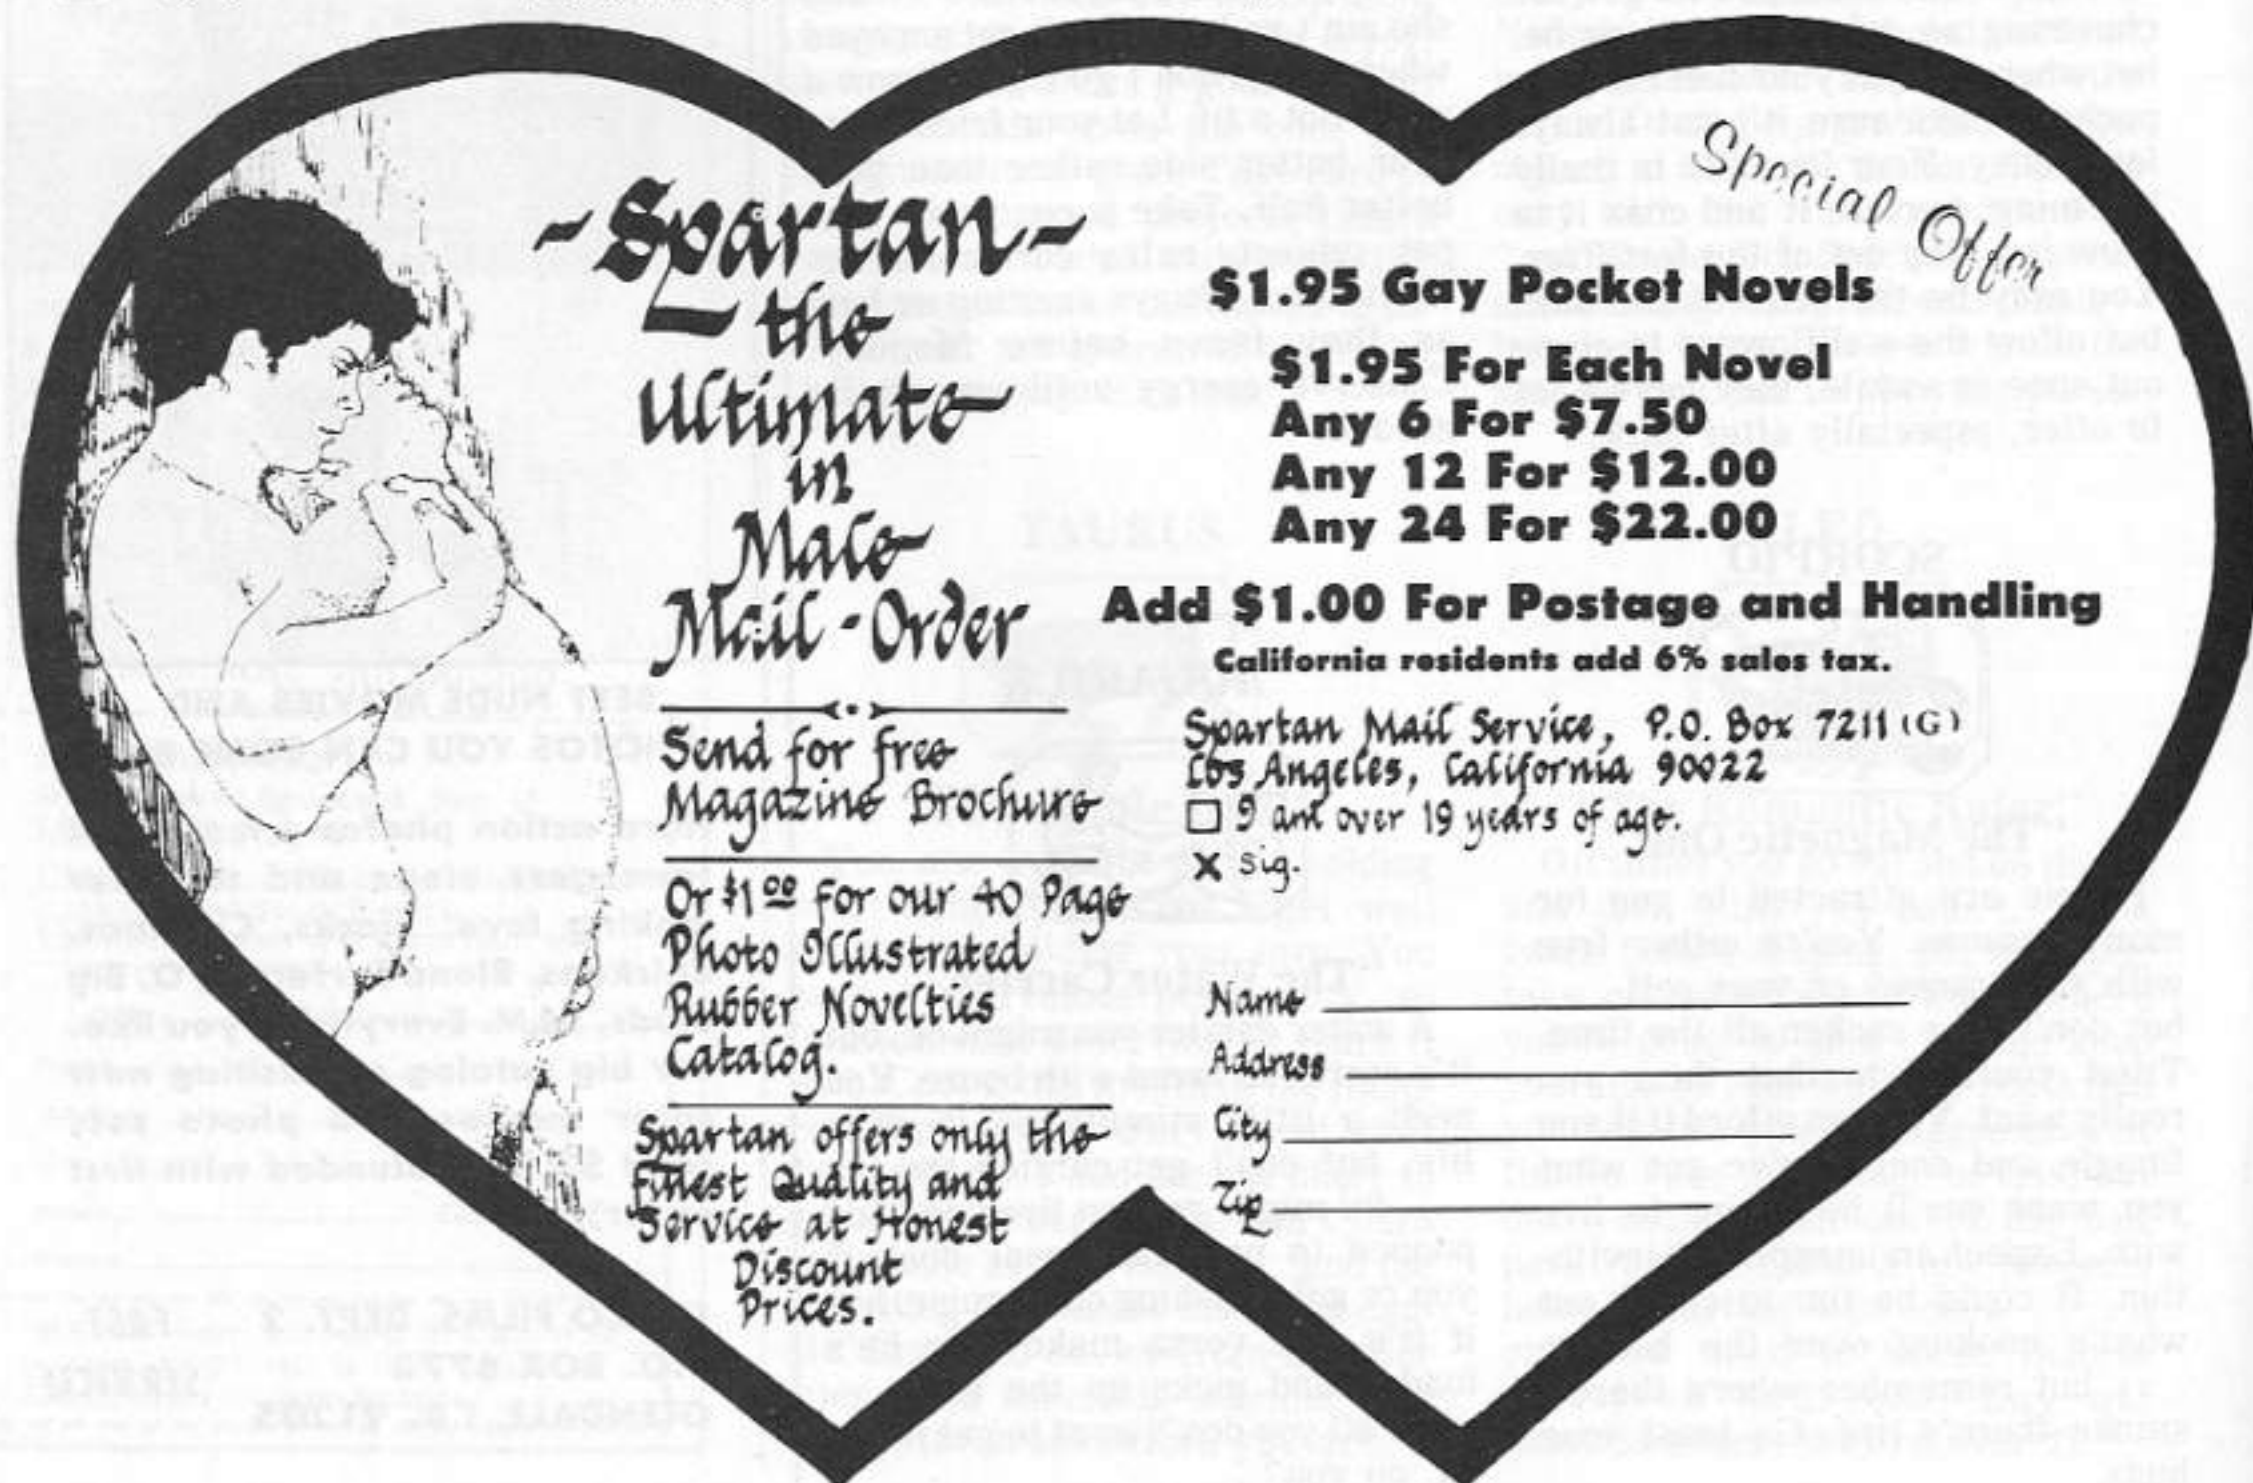 -Spartan-
the
Ultimate
in
Male
Mail-Order
Send for free
Magazine Brochure
Or $1.00 for our 40 Page
Photo Illustrated
Rubber Novelties
Catalog.
Spartan offers only the
Finest Quality and
Service at Honest
Discount
Prices.
Special Offer
$1.95 Gay Pocket Novels
$1.95 For Each Novel
Any 6 For $7.50
Any 12 For $12.00
Any 24 For $22.00
Add $1.00 For Postage and Handling
California residents add 6% sales tax.
Spartan Mail Service, P.O. Box 7211 (G)
Los Angeles, California 90022
I am over 19 years of age.
X Sig.
Name
Address
City
Zip